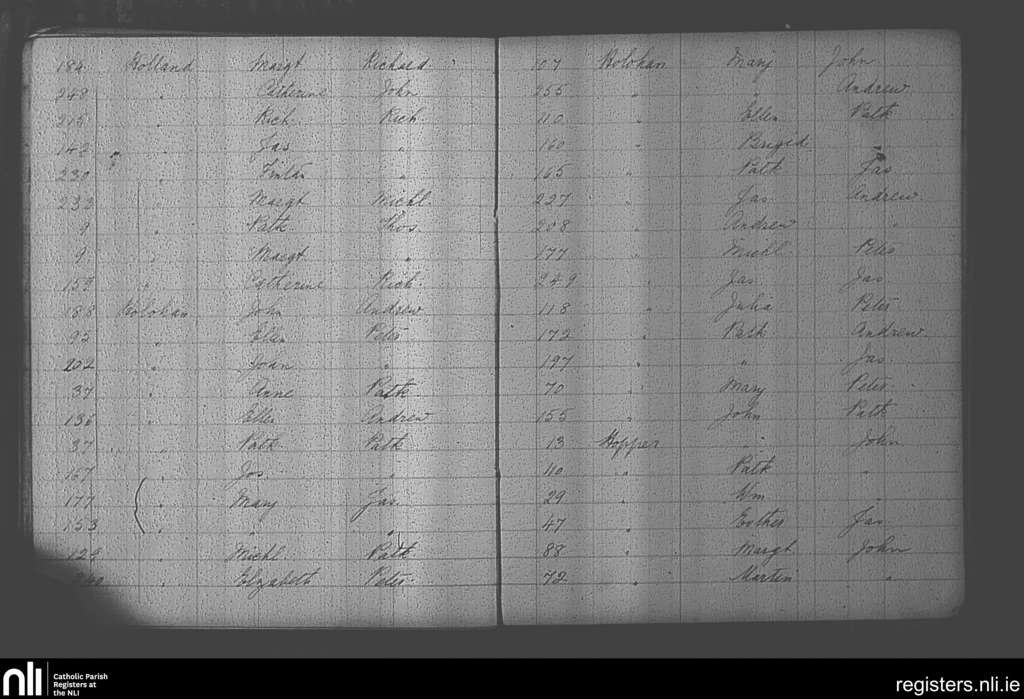 184 Holland Margt Richard
248 " Catherine John
215 " Rich. Rich.
142 " Jas "
230 " Fintan "
233 " Margt Michl
9 " Patk Thos.
9 " Margt "
159 " Catherine Rich.
188 Holohan John Andrew
95 " Ellen Peter
202 " Joan "
37 " Anne Patk
136 " Ellen Andrew
37 " Patk Patk
167 " Jos. "
177 " Mary Jas.
153 " " "
129 " Michl Patk
" Elizabeth Peter
107 Holohan Mary John
255 " " Andrew
110 " Ellen Patk
160 " Brigid "
165 " Patk Jas
227 " Jas Andrew
208 " Andrew "
177 " Michl Peter
249 " Jas Jas
118 " Julia Peter
172 " Patk Andrew
197 " " Jas
70 " Mary Peter
155 " John Patk
13 Hopper " John
110 " Patk "
29 " Wm "
47 " Esther Jas
88 " Margt John
72 " Martin "
nli
Catholic Parish
Registers at
the NLI
registers.nli.ie